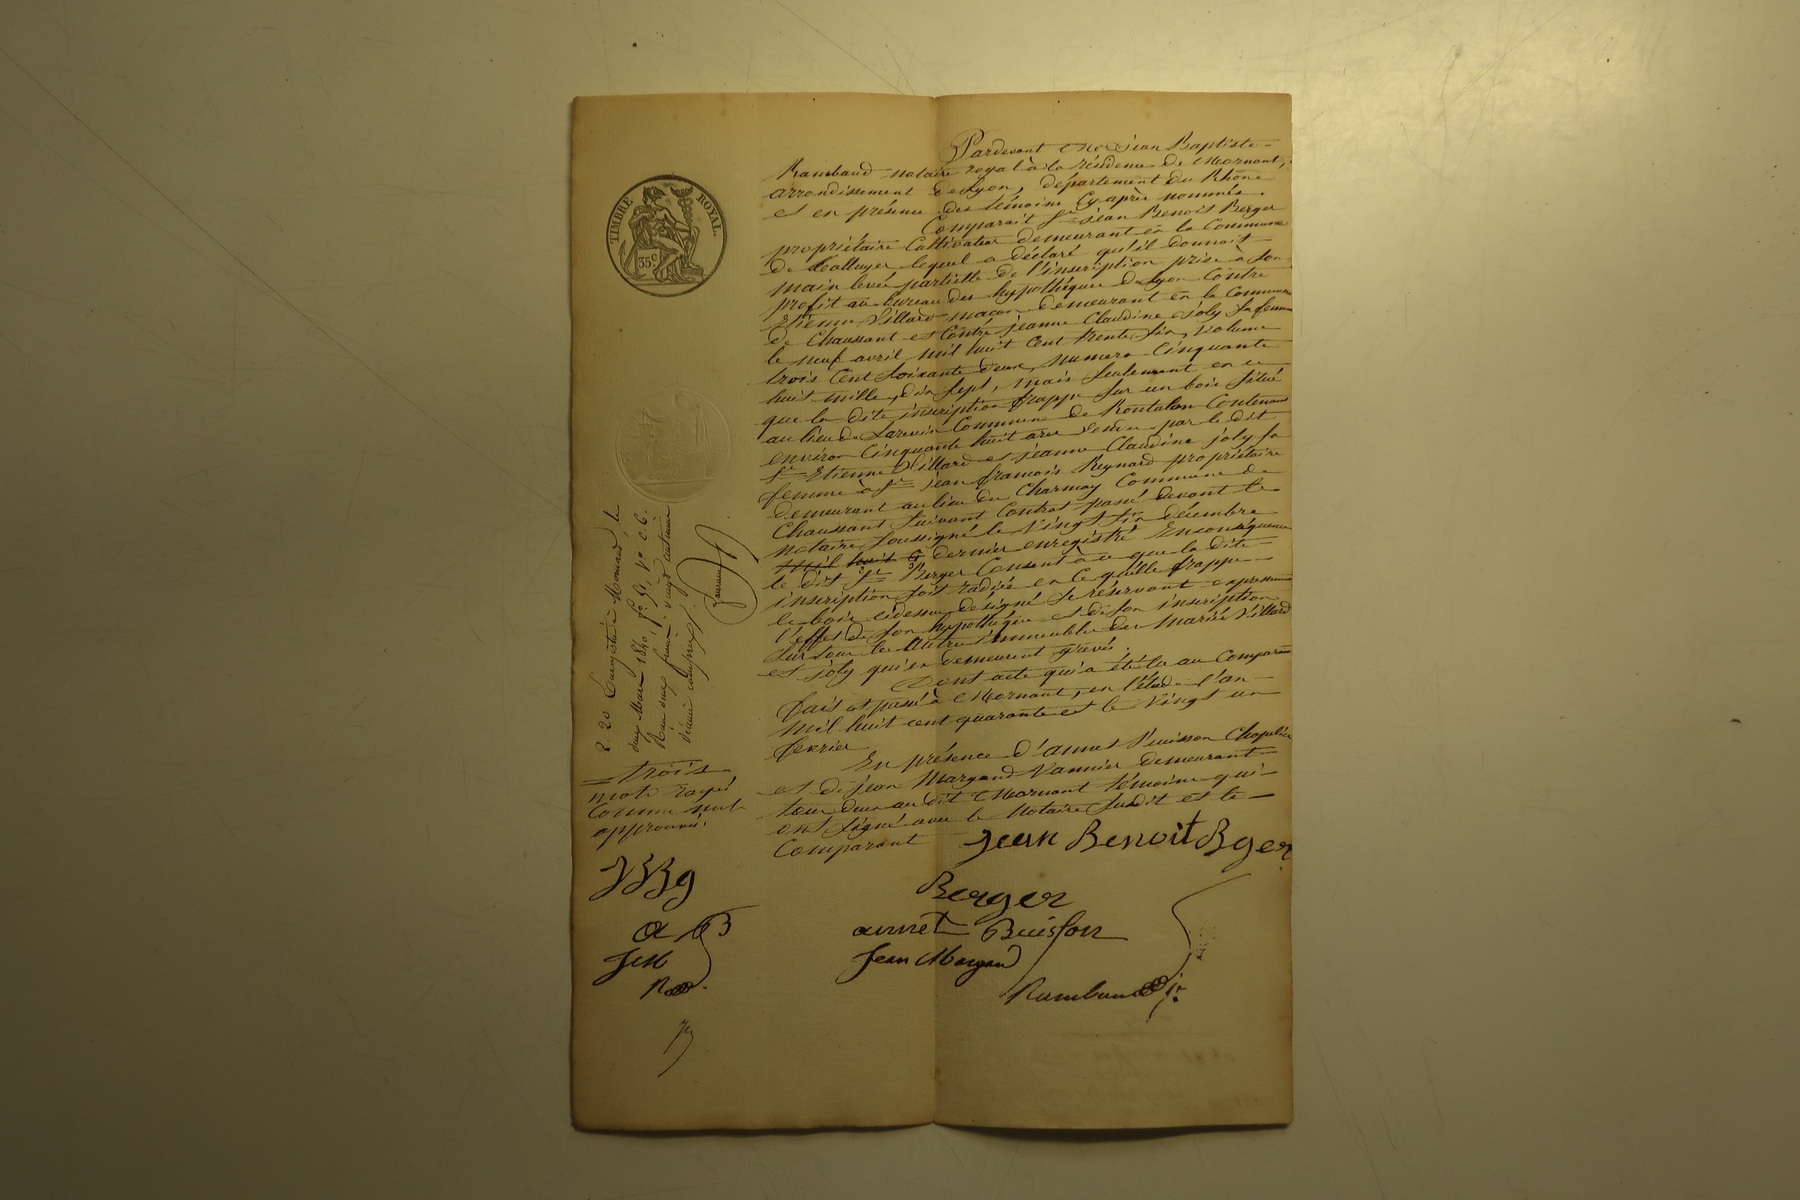 Pardevant Me Jean Baptiste
Rambaud notaire royal à la résidence de Mornant,
arrondissement de Lyon, département du Rhône
et en présence des témoins cy après nommés.
Comparait sr Jean Benoit Berger
propriétaire cultivateur demeurant en la Commune
de lequel a déclaré qu'il donnait
main levée partielle de l'inscription prise à son
profit au bureau des hypothèques de Lyon contre
Etienne Villard maçon demeurant en la Commune
de Chaussant et contre jeanne Claudine joly sa femme
le neuf avril mil huit cent trente six, volume
trois cent soixante deux, numéro cinquante
huit mille, dix sept, mais seulement en ce
que la dite inscription frappe sur un bois situé
au lieu de Commune de Rontalon contenant
environ cinquante huit ares vendu par le dit
sr Etienne Villard et jeanne Claudine joly sa
femme à sr jean françois Reynard propriétaire
demeurant au lieu du Charmay Commune de
Chaussant suivant contrat passé devant le
notaire soussigné le vingt six décembre
mil huit c dernier enregistré En conséquence
le dit sr Berger consent à ce que la dite
inscription soit radiée en ce qu'elle frappe
le bois cidessus designé se réservant expressement
l'effet de son hypothèque et de son inscription
sur tous les autres immeubles des mariés Villard
et joly qui en demeurent grevés.
Dont acte qui a été lu au comparant
fait et passé à Mornant, en l'étude l'an
mil huit cent quarante et le vingt un
fevrier
En présence d'annet Buisson Chapelier
et de jean Margand Vannier demeurant
tous deux au dit Mornant témoins qui
ont signé avec le Notaire susdit et le
Comparant
Jean Benoit Bger
Berger
annet Buisson
Jean Margand
Rambaud
TIMBRE ROYAL.
35c
2. 20 Enregistré à Mornant le
deux Mars 1840, fo 51, Vo c 6.
Reçu deux francs vingt centimes
décime compris.
trois
mots rayés
comme nuls
approuvés.
JBBg
a B
JM
R